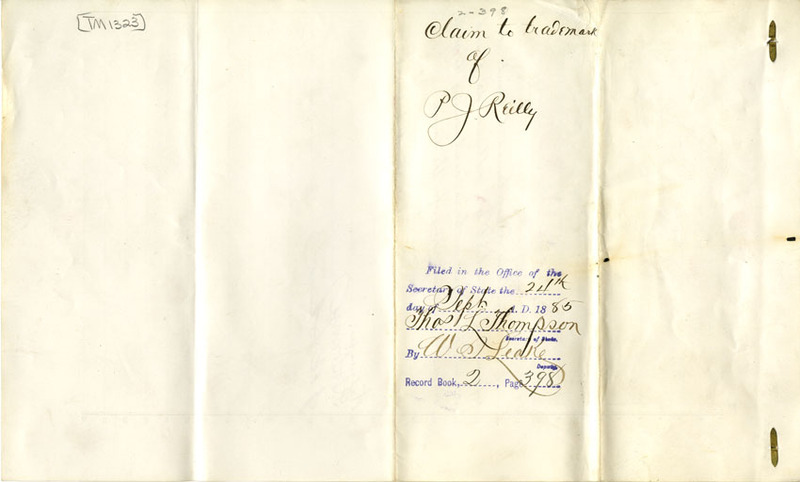 [TM 1323]
2-398
Claim to trademark
of
P J Reilly
Filed in the Office of the
Secretary of State the 24th
day of Sept A. D. 1885
Thos L Thompson
Secretary of State.
By W S Leake
Deputy.
Record Book, 2, Page 398